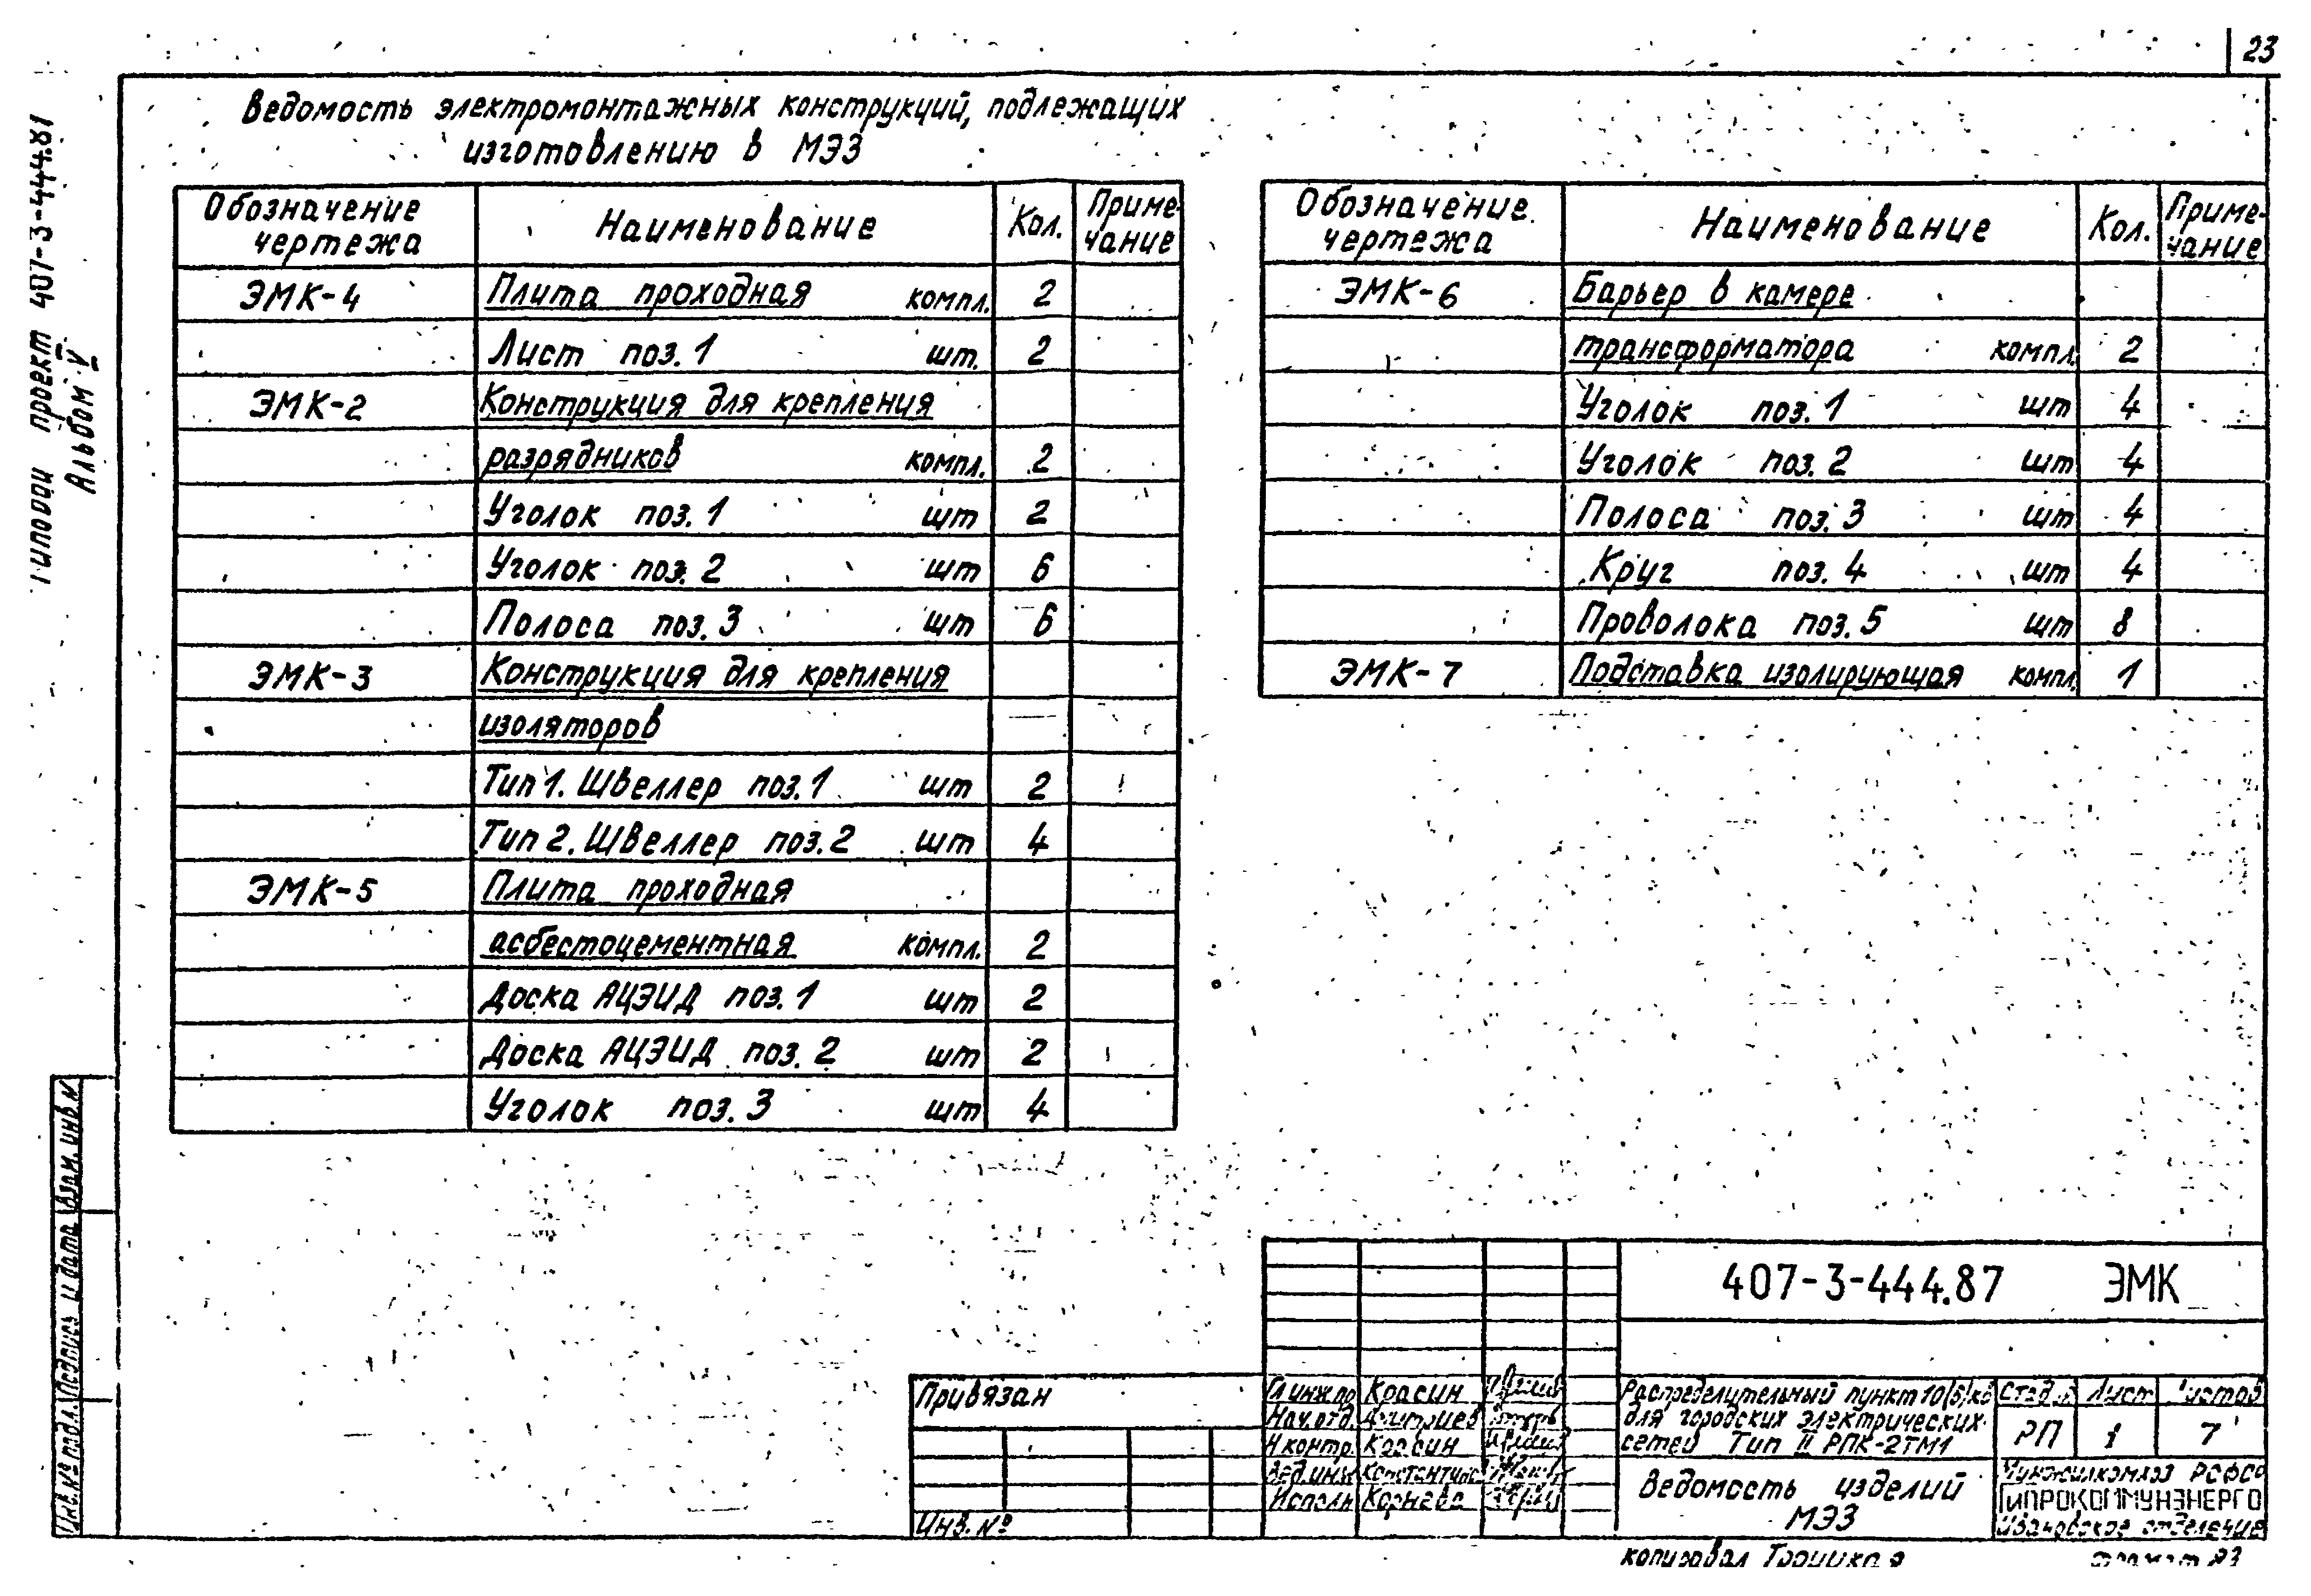 23
Ведомость электромонтажных конструкций, подлежащих
изготовлению в МЭЗ
Обозначение чертежа Наименование Кол. Приме- чание
ЭМК-4 Плита проходная компл. 2
Лист поз. 1 шт. 2
ЭМК-2 Конструкция для крепления
разрядников компл. 2
Уголок поз. 1 шт 2
Уголок поз. 2 шт 6
Полоса поз. 3 шт 6
ЭМК-3 Конструкция для крепления
изоляторов
Тип 1. Швеллер поз. 1 шт 2
Тип 2. Швеллер поз. 2 шт 4
ЭМК-5 Плита проходная
асбестоцементная компл. 2
Доска АЦЭИД поз. 1 шт 2
Доска АЦЭИД поз. 2 шт 2
Уголок поз. 3 шт 4
Обозначение чертежа Наименование Кол. Приме- чание
ЭМК-6 Барьер в камере
трансформатора компл. 2
Уголок поз. 1 шт 4
Уголок поз. 2 шт 4
Полоса поз. 3 шт 4
Круг поз. 4 шт 4
Проволока поз. 5 шт 8
ЭМК-7 Подставка изолирующая компл. 1
Типовой проект 407-3-444.87
Альбом V
Инв. № подл. Подпись и дата Взам. инв. N
407-3-444.87 ЭМК
Привязан
Инв. №
Гл инж пр Красин
Нач. отд. Дмитриев
Н контр. Красин
Вед. инж
Исполн Корнева
Распределительный пункт 10(6) кВ
для городских электрических
сетей Тип II РПК-2ТМ1
Ведомость изделий
МЭЗ
Стадия Лист Листов
РП 1 7
Минжилкомхоз РСФСР
ГИПРОКОММУНЭНЕРГО
Ивановское отделение
копировал Троицкая
формат А3